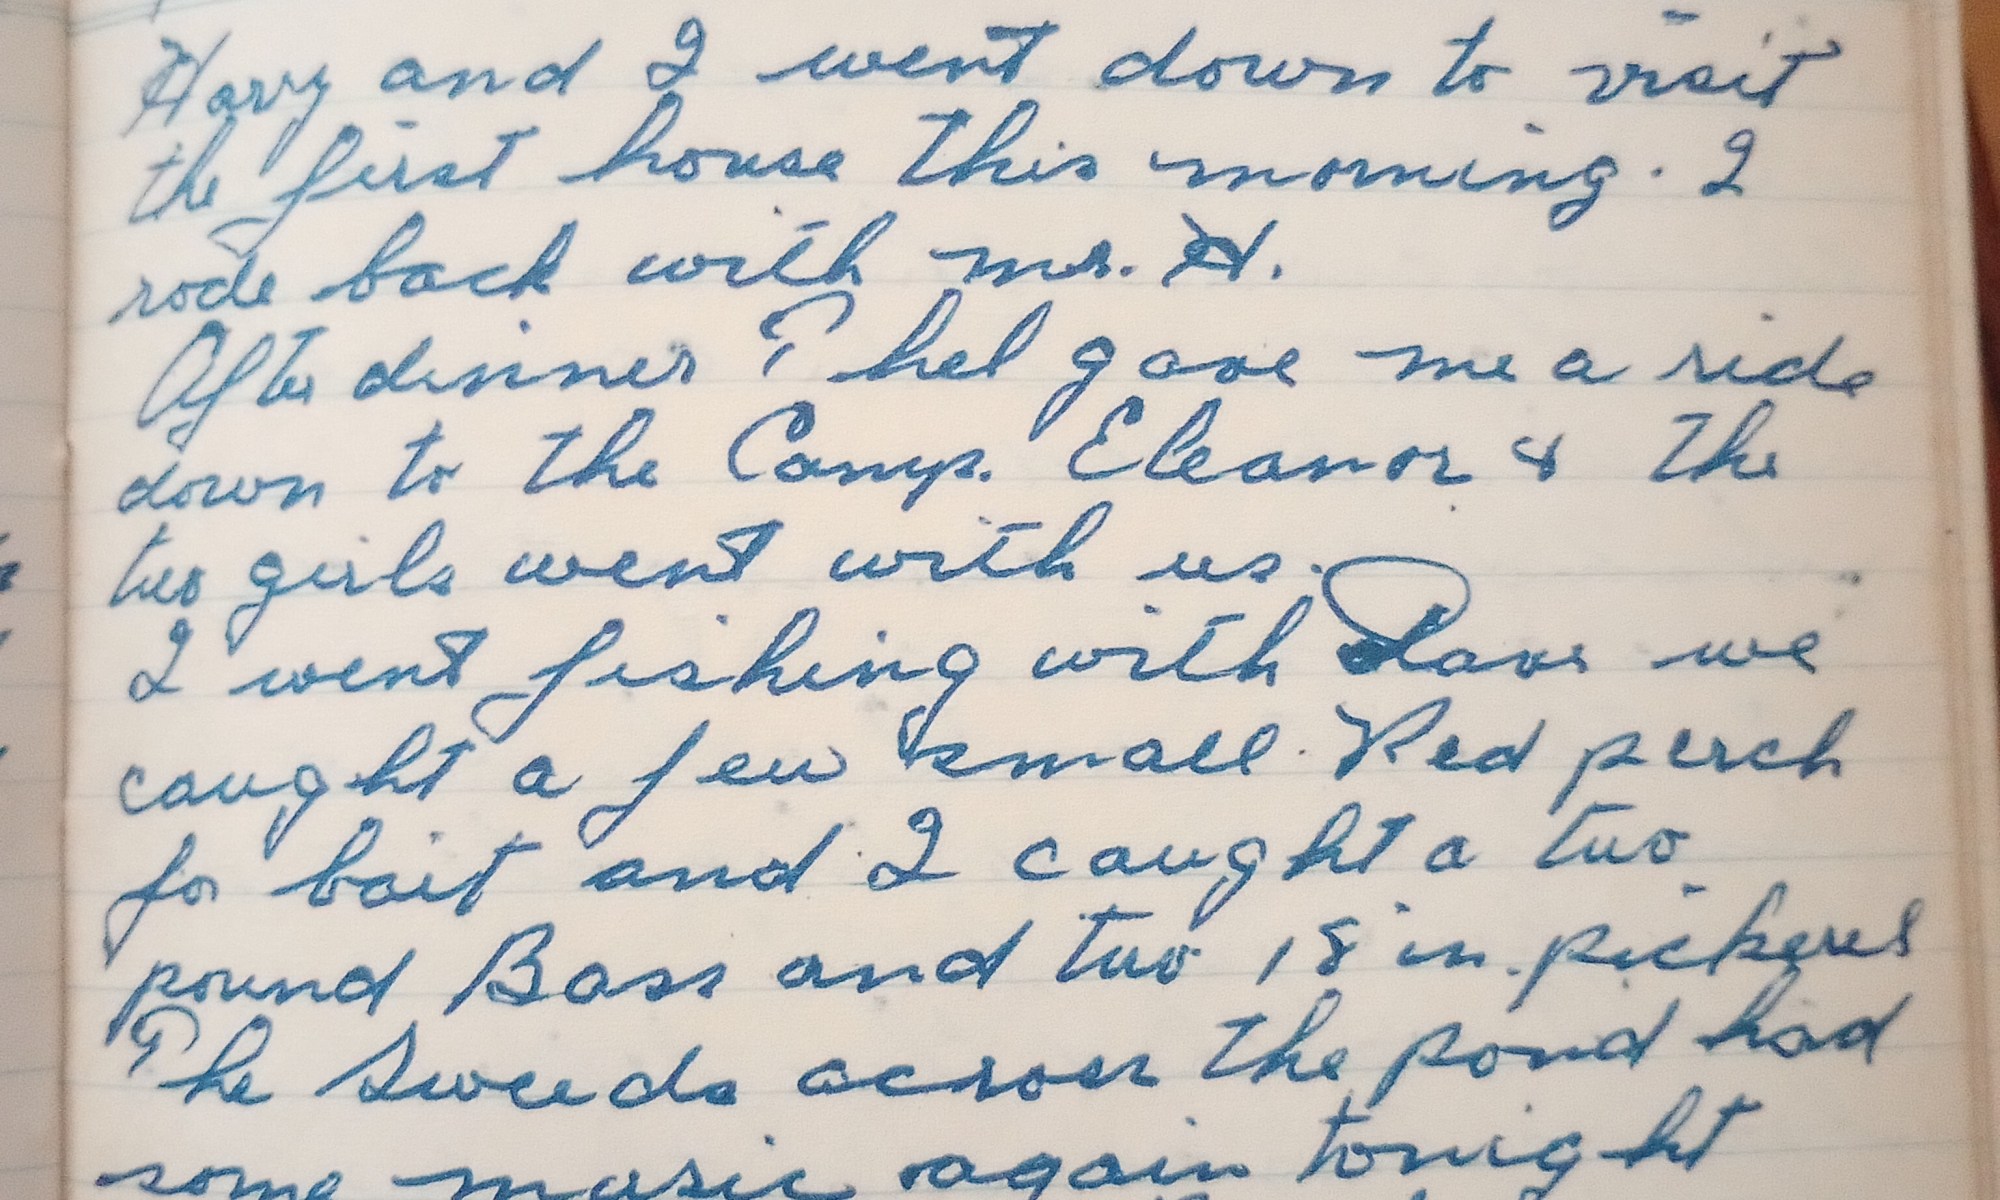 Harry and I went down to visit
the first house this morning. I
rode back with mr. H.
After dinner Thel gave me a ride
down to the Camp. Eleanor & the
two girls went with us.
I went fishing with Dave we
caught a few small Red perch
for bait and I caught a two
pound Bass and two 18 in. pickerel
The Sweeds across the pond had
some music again tonight